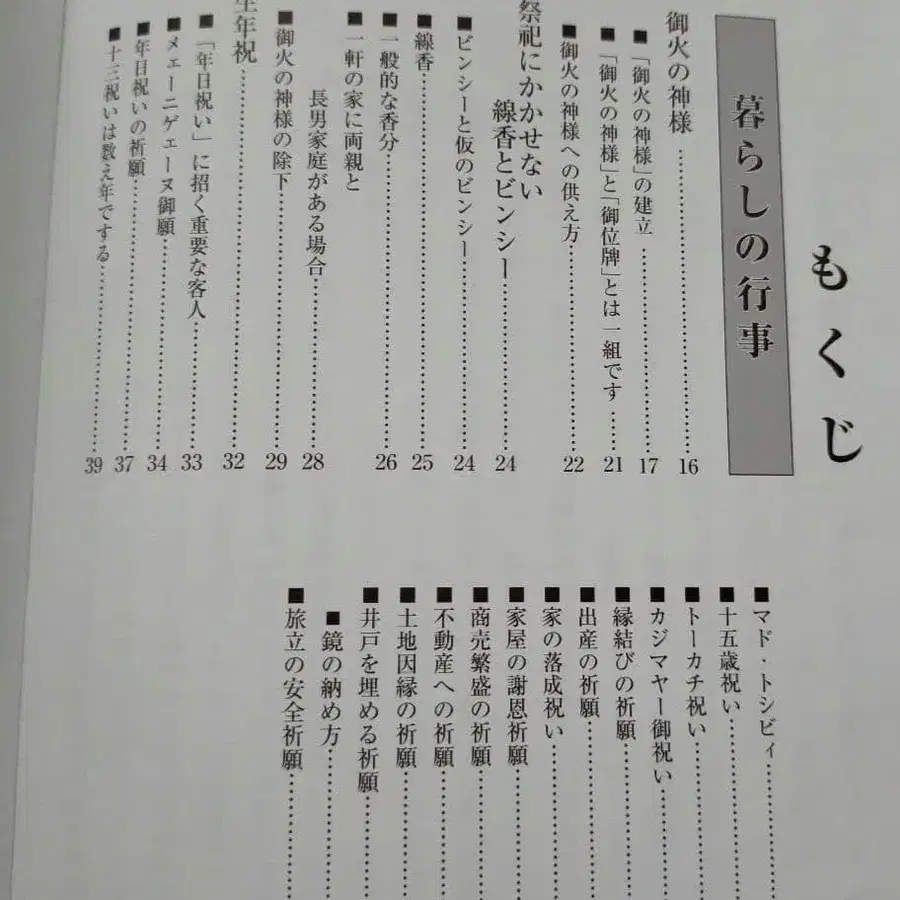 もくじ
暮らしの行事
御火の神様……………………16
■「御火の神様」の建立……………………17
■「御火の神様」と「御位牌」とは一組です……21
■御火の神様への供え方……………………22
祭祀にかかせない
線香とビンシー……………………24
■ビンシーと仮のビンシー……………………24
■線香……………………25
■一般的な香分……………………26
■一軒の家に両親と
長男家庭がある場合……………………28
■御火の神様の除下……………………29
生年祝……………………32
■「年日祝い」に招く重要な客人……………………33
■メェーニゲェーヌ御願……………………34
■年日祝いの祈願……………………37
■十三祝いは数え年でする……………………39
■マド・トシビィ……………………
■十五歳祝い……………………
■トーカチ祝い……………………
■カジマヤー御祝い……………………
■縁結びの祈願……………………
■出産の祈願……………………
■家の落成祝い……………………
■家屋の謝恩祈願……………………
■商売繁盛の祈願……………………
■不動産への祈願……………………
■土地因縁の祈願……………………
■井戸を埋める祈願……………………
■鏡の納め方……………………
■旅立の安全祈願……………………